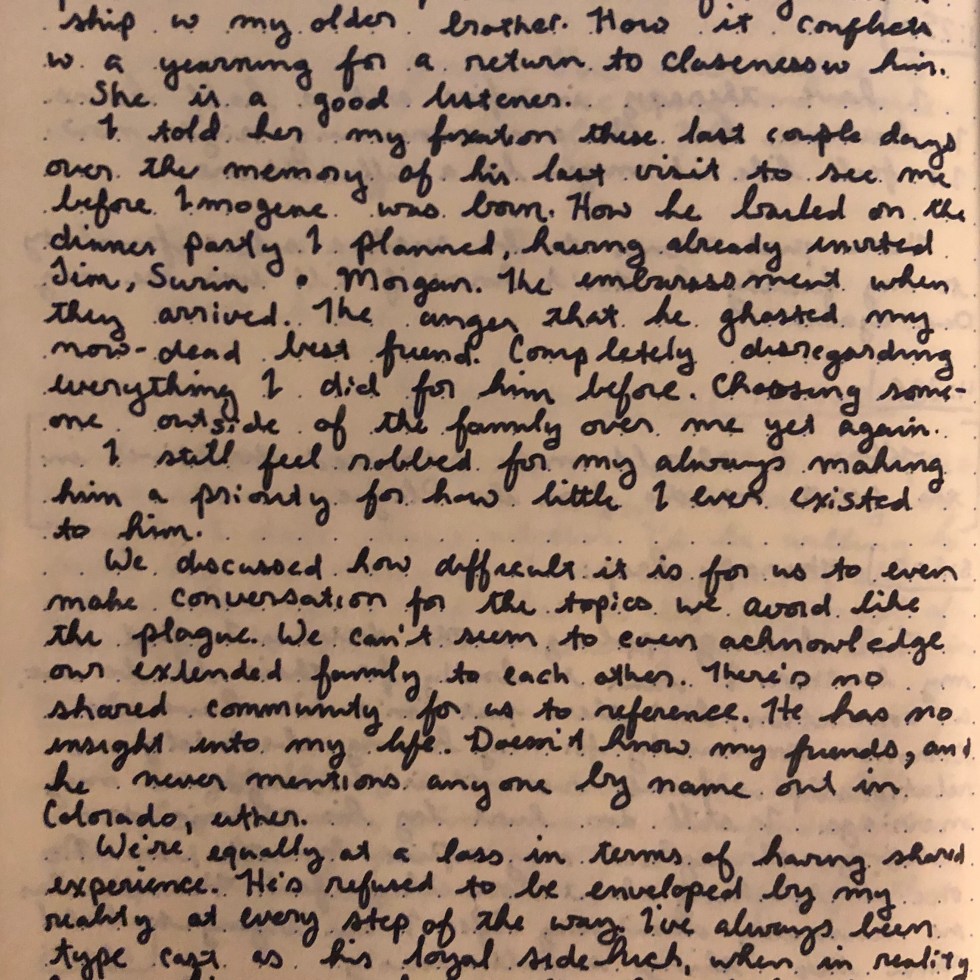 ship w my older brother. How it conflicts
w a yearning for a return to closeness w him.
She is a good listener.
I told her my fixation these last couple days
over the memory of his last visit to see me
before Imogene was born. How he bailed on the
dinner party I planned, having already invited
Jim, Surin + Morgan. The embarassment when
they arrived. The anger that he ghosted my
now-dead best friend. Completely disregarding
everything I did for him before. Choosing some-
one outside of the family over me yet again.
I still feel robbed for my always making
him a priority for how little I ever existed
to him.
We discussed how difficult it is for us to even
make conversation for the topics we avoid like
the plague. We can't seem to even acknowledge
our extended family to each other. There's no
shared community for us to reference. He has no
insight into my life. Doesn't know my friends, and
he never mentions anyone by name out in
Colorado, either.
We're equally at a loss in terms of having shared
experience. He's refused to be enveloped by my
reality at every step of the way. I've always been
type cast as his loyal sidekick, when in reality